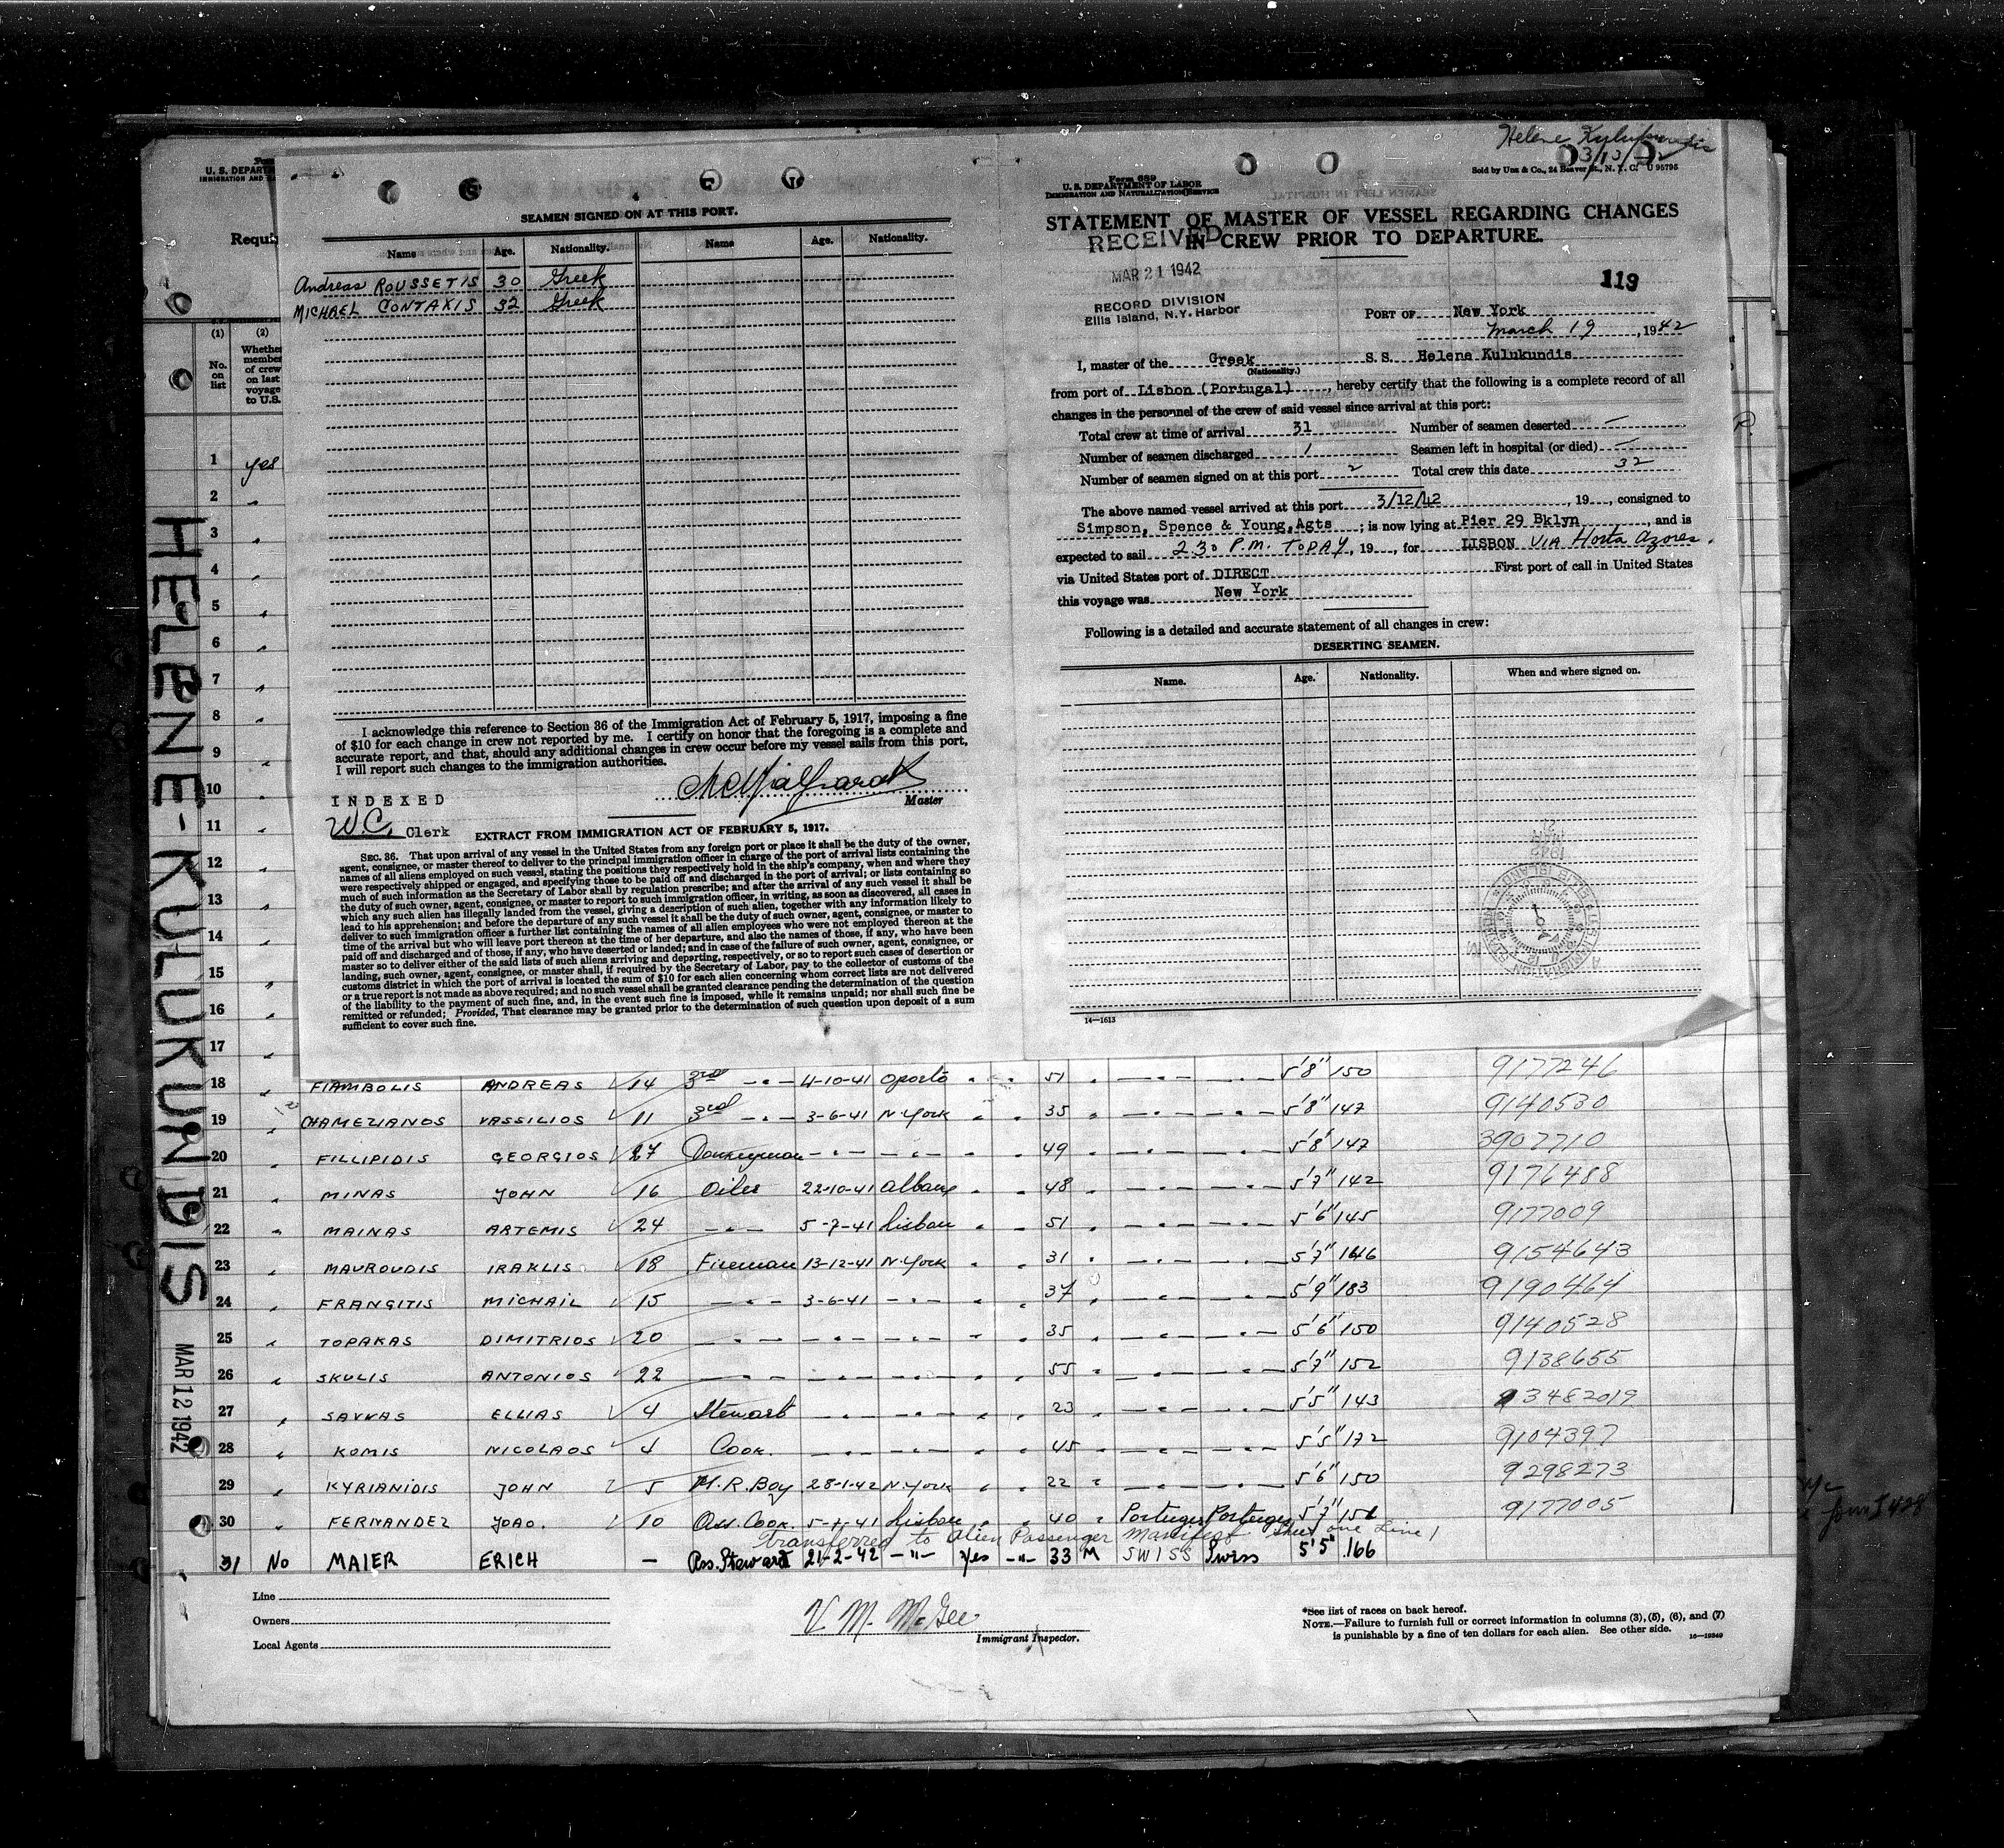 Helene Kulukundis
3/13/42
Sold by Unz & Co., 24 Beaver St., N. Y. C. 95795
U. S. DEPART
IMMIGRATION AND
Requi
(1)
(2)
No. on list
Whether member of crew on last voyage to U.S.
SEAMEN SIGNED ON AT THIS PORT.
Name Age. Nationality. Name Age. Nationality.
Andreas ROUSSETIS 30 Greek
MICHAEL CONTAXIS 32 Greek
I acknowledge this reference to Section 36 of the Immigration Act of February 5, 1917, imposing a fine
of $10 for each change in crew not reported by me. I certify on honor that the foregoing is a complete and
accurate report, and that, should any additional changes in crew occur before my vessel sails from this port,
I will report such changes to the immigration authorities.
Master
INDEXED
W.C. Clerk
EXTRACT FROM IMMIGRATION ACT OF FEBRUARY 5, 1917.
SEC. 36. That upon arrival of any vessel in the United States from any foreign port or place it shall be the duty of the owner,
agent, consignee, or master thereof to deliver to the principal immigration officer in charge of the port of arrival lists containing the
names of all aliens employed on such vessel, stating the positions they respectively hold in the ship's company, when and where they
were respectively shipped or engaged, and specifying those to be paid off and discharged in the port of arrival; or lists containing so
much of such information as the Secretary of Labor shall by regulation prescribe; and after the arrival of any such vessel it shall be
the duty of such owner, agent, consignee, or master to report to such immigration officer, in writing, as soon as discovered, all cases in
which any such alien has illegally landed from the vessel, giving a description of such alien, together with any information likely to
lead to his apprehension; and before the departure of any such vessel it shall be the duty of such owner, agent, consignee, or master to
deliver to such immigration officer a further list containing the names of all alien employees who were not employed thereon at the
time of the arrival but who will leave port thereon at the time of her departure, and also the names of those, if any, who have been
paid off and discharged and of those, if any, who have deserted or landed; and in case of the failure of such owner, agent, consignee, or
master so to deliver either of the said lists of such aliens arriving and departing, respectively, or so to report such cases of desertion or
landing, such owner, agent, consignee, or master shall, if required by the Secretary of Labor, pay to the collector of customs of the
customs district in which the port of arrival is located the sum of $10 for each alien concerning whom correct lists are not delivered
or a true report is not made as above required; and no such vessel shall be granted clearance pending the determination of the question
of the liability to the payment of such fine, and, in the event such fine is imposed, while it remains unpaid; nor shall such fine be
remitted or refunded; Provided, That clearance may be granted prior to the determination of such question upon deposit of a sum
sufficient to cover such fine.
Form 689
U. S. DEPARTMENT OF LABOR
IMMIGRATION AND NATURALIZATION SERVICE
STATEMENT OF MASTER OF VESSEL REGARDING CHANGES
IN CREW PRIOR TO DEPARTURE.
RECEIVED
MAR 21 1942
RECORD DIVISION
Ellis Island, N.Y. Harbor
119
PORT OF New York
March 19, 1942
I, master of the Greek S.S. Helene Kulukundis
(Nationality.)
from port of Lisbon (Portugal), hereby certify that the following is a complete record of all
changes in the personnel of the crew of said vessel since arrival at this port:
Total crew at time of arrival 31 Number of seamen deserted —
Number of seamen discharged 1 Seamen left in hospital (or died) —
Number of seamen signed on at this port 2 Total crew this date 32
The above named vessel arrived at this port 3/12/42, 19, consigned to
Simpson, Spence & Young, Agts; is now lying at Pier 29 Bklyn, and is
expected to sail 2 30 P.M. TODAY, 19, for LISBON VIA Horta Azores.
via United States port of DIRECT First port of call in United States
this voyage was New York
Following is a detailed and accurate statement of all changes in crew:
DESERTING SEAMEN.
Name. Age. Nationality. When and where signed on.
14—1613
HELENE-KULUKUNDIS
MAR 12 1942
1 yes
2 "
3 "
4 "
5 "
6 "
7 "
8 "
9 "
10 "
11 "
12 "
13 "
14 "
15 "
16 "
17 "
18 " FIAMBOLIS ANDREAS 14 3rd —"— 4-10-41 Oporto " " 51 " —"— —"— 5'8" 150 9177246
19 " CHAMEZIANOS VASSILIOS 11 3rd —"— 3-6-41 N-York " " 35 " —"— —"— 5'8" 147 9140530
20 " FILLIPIDIS GEORGIOS 27 Donkeyman —"— —"— " " 49 " —"— —"— 5'8" 147 3907710
21 " MINAS JOHN 16 Oiler 22-10-41 Albany " " 48 " —"— —"— 5'7" 142 9176488
22 " MAINAS ARTEMIS 24 —"— 5-7-41 Lisbon " " 51 " —"— —"— 5'6" 145 9177009
23 " MAUROUDIS IRAKLIS 18 Fireman 13-12-41 N-York " " 31 " —"— —"— 5'7" 146 9154643
24 " FRANGITIS MICHAIL 15 —"— 3-6-41 —"— " " 37 " —"— —"— 5'9" 183 9190464
25 " TOPAKAS DIMITRIOS 20 —"— —"— —"— " " 35 " —"— —"— 5'6" 150 9140528
26 " SKULIS ANTONIOS 22 —"— —"— —"— " " 55 " —"— —"— 5'7" 152 9138655
27 " SAVVAS ELLIAS 4 Steward —"— —"— " " 23 " —"— —"— 5'5" 143 3482019
28 " KOMIS NICOLAOS 4 Cook. —"— —"— " " 45 " —"— —"— 5'5" 172 9104397
29 " KYRIANIDIS JOHN 5 M.R. Boy 28-1-42 N-York " " 22 " —"— —"— 5'6" 150 9298273
30 " FERNANDEZ JOAO. 10 Ass. Cook. 5-7-41 Lisbon " " 40 " Portugez Portugez 5'7" 151 9177005
Transferred to Alien Passenger Manifest Sheet one Line 1
31 No MAIER ERICH — Ass. Steward 21-2-42 —"— Yes —"— 33 M SWISS Swiss 5'5" .166
Line
Owners
Local Agents
V M. McGee
Immigrant Inspector.
*See list of races on back hereof.
NOTE.—Failure to furnish full or correct information in columns (3), (5), (6), and (7)
is punishable by a fine of ten dollars for each alien. See other side. 16—19349